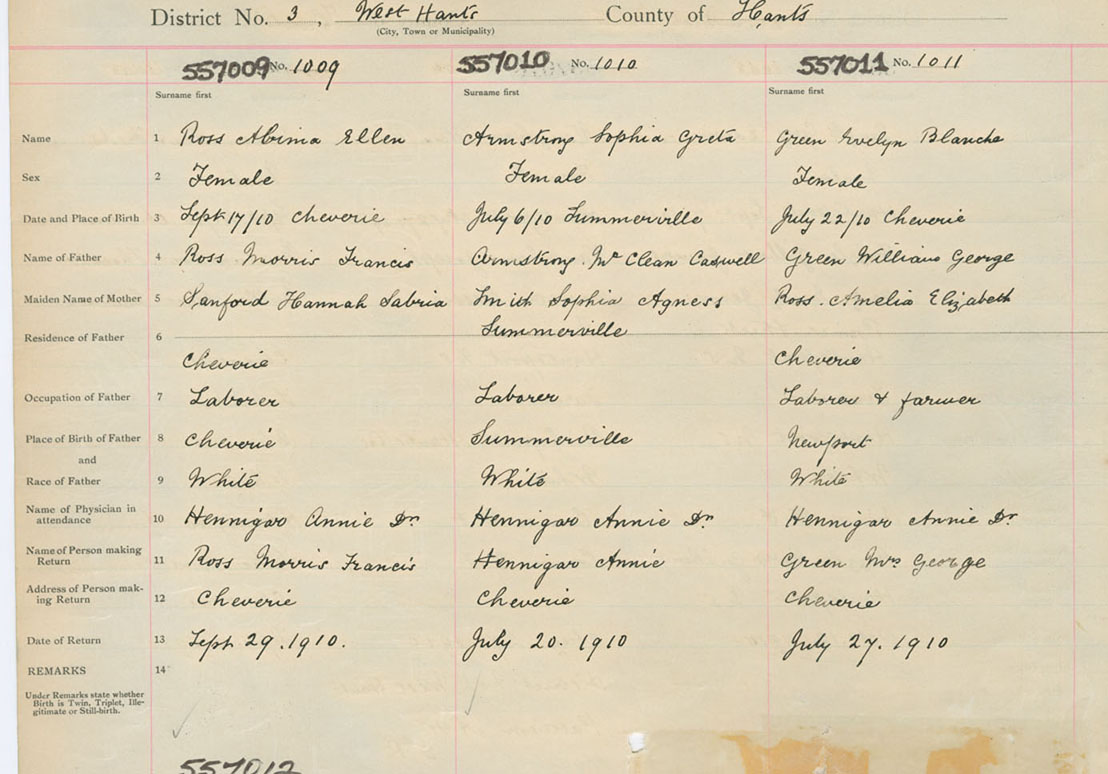 District No. 3, West Hants County of Hants
(City, Town or Municipality)
557009 No. 1009 557010 No. 1010 557011 No. 1011
Surname first Surname first Surname first
Name 1 Ross Albima Ellen Armstrong Sophia Greta Green Evelyn Blanche
Sex 2 Female Female Female
Date and Place of Birth 3 Sept 17/10 Cheverie July 6/10 Summerville July 22/10 Cheverie
Name of Father 4 Ross Morris Francis Armstrong. Mc Clean Caswell Green William George
Maiden Name of Mother 5 Sanford Hannah Sabria Smith Sophia Agness Ross. Amelia Elizabeth
Summerville
Residence of Father 6
Cheverie Cheverie
Occupation of Father 7 Laborer Laborer Laborer & farmer
Place of Birth of Father 8 Cheverie Summerville Newport
and
Race of Father 9 White White White
Name of Physician in
attendance 10 Hennigar Annie Dr. Hennigar Annie Dr. Hennigar Annie Dr.
Name of Person making
Return 11 Ross Morris Francis Hennigar Annie Green Mrs George
Address of Person mak-
ing Return 12 Cheverie Cheverie Cheverie
Date of Return 13 Sept. 29. 1910. July 20. 1910 July 27. 1910
REMARKS 14
Under Remarks state whether
Birth is Twin, Triplet, Ille-
gitimate or Still-birth.
557012